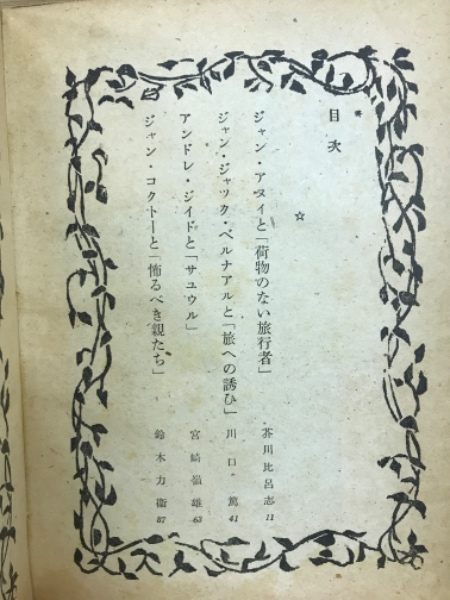 目次
☆
ジャン・アヌイと「荷物のない旅行者」 芥川比呂志 11
ジャン・ジャック・ベルナアルと「旅への誘ひ」 川口篤 41
アンドレ・ジイドと「サユウル」 宮崎嶺雄 63
ジャン・コクトーと「怖るべき親たち」 鈴木力衛 87